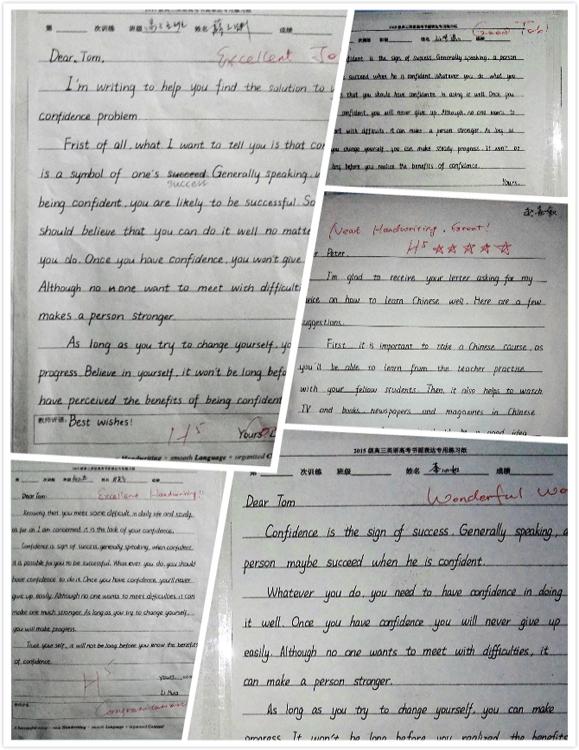 次训练 班级 姓名 成绩
Dear, Tom,
Excellent Jo
I'm writing to help you find the solution to
confidence problem
Frist of all, what I want to tell you is that con
is a symbol of one's succeed Generally speaking,
success
being confident, you are likely to be successful. So
should believe that you can do it well no matte
you do. Once you have confidence, you won't give
Although no one want to meet with difficulti
makes a person stronger.
As long as you try to change yourself, yo
progress. Believe in yourself, it won't be long befo
have perceived the benefits of being confident
教师评语: Best wishes!
H5
Yours
Handwriting + smooth Language + organized C
Good Job!
次训练 班级 姓名 成绩
fident is the sign of success. Generally speaking, a person
succeed when he is confident. Whatever you do, what you
that you should have confidence in doing it well. Once you
confident, you will never give up. Although no one wants to
with difficults, it can make a person stronger. As long as
you change yourself, you can make steady progress. It won't
long before you realize the benefits of confidence.
Yours,
Neat Handwriting, Great!
H5 ☆☆☆☆☆
Peter,
I'm glad to receive your letter asking for my
vice on how to learn Chinese well. Here are a few
suggestions.
First, it is important to take a Chinese course, as
you'll be able to learn from the teacher practise
with your fellow students. Then, it also helps to watch
TV and books, newspapers and magazines in Chinese
good idea
Dear Tom
Excellent Handwriting!!
Knowing that you meet some difficult in daily life and study,
as far as I am concerned, it is the lack of your confidence.
Confidence is sign of success, generally speaking, when confident,
it is possible for you to be successful. What ever you do, you should
have confidence to do it. Once you have confidence, you'll never
give up easily. Although no one wants to meet difficulties, it can
make one much stronger. As long as you try to change yourself,
you will make progress.
Trust yourself, it will not be long before you know the benefits
of confidence.
Yours,
Li Hua
H5
Congratulations
2015级高三英语高考书面表达专用练习纸
次训练 班级 姓名 成绩
Dear Tom
Wonderful wo
Confidence is the sign of success. Generally speaking, a
person maybe succeed when he is confident.
Whatever you do, you need to have confidence in doing
it well. Once you have confidence you will never give up
easily. Although no one wants to meet with difficulties, it
can make a person stronger.
As long as you try to change yourself, you can make
progress. It won't be long before you realized the benefits